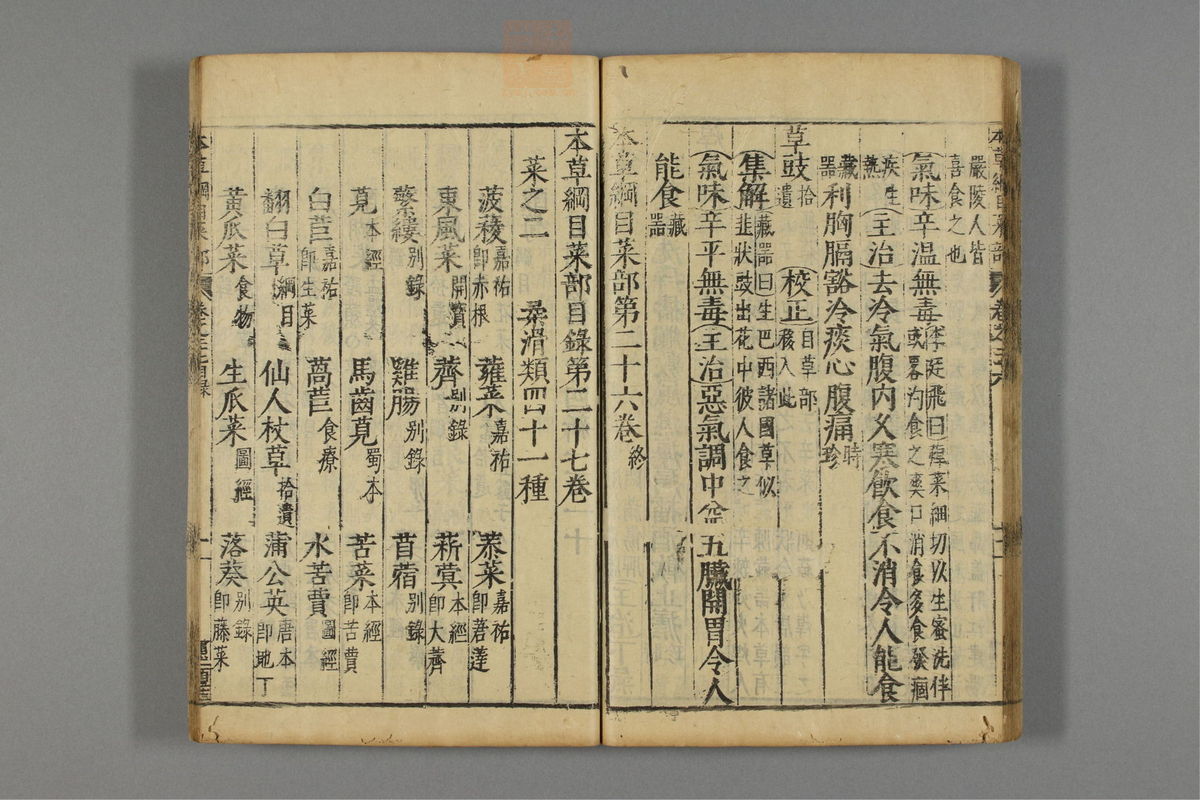 嚴陵人皆
喜食之也
氣味辛溫無毒李廷飛曰蔊菜細切以生蜜洗伴
或畧汋食之爽口消食多食發痼
疾生
熱
主治去冷氣腹內久寒飲食不消令人能食
藏
器
利胸膈豁冷痰心腹痛時
珍
草豉拾
遺
校正自草部
移入此
集解藏器曰生巴西諸國草似
韭狀豉出花中彼人食之
氣味辛平無毒主治惡氣調中益五臟開胃令人
能食藏
器
本草綱目菜部第二十六卷終
本草綱目菜部目錄第二十七卷
菜之二 柔滑類四十一種
菠薐嘉祐
即赤根
蕹菜嘉祐
菾菜嘉祐
即莙薘
東風菜開寶
薺別錄
菥蓂本經
即大薺
蘩縷別錄
雞腸別錄
苜蓿別錄
莧本經
馬齒莧蜀本
苦菜本經
即苦蕒
白苣嘉祐
即生菜
萵苣食療
水苦蕒圖經
翻白草綱目
仙人杖草拾遺
蒲公英唐本
即地丁
黃瓜菜食物
生瓜菜圖經
落葵別錄
即藤菜